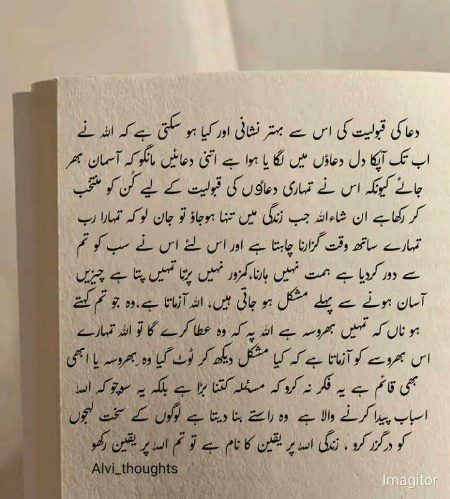 دعا کی قبولیت کی اس سے بہتر نشانی اور کیا ہو سکتی ہے کہ اللہ نے
اب تک آپکا دل دعاؤں میں لگا یا ہوا ہے اتنی دعائیں مانگو کہ آسمان بھر
جائے کیونکہ اس نے تمہاری دعاؤں کی قبولیت کے لیے کُن کو منتخب
کر رکھاہے ان شاءاللہ جب زندگی میں تنہا ہوجاؤ تو جان لو کہ تمہارا رب
تمہارے ساتھ وقت گزارنا چاہتا ہے اور اس لئے اس نے سب کو تم
سے دور کردیا ہے ہمت نہیں ہارنا،کمزور نہیں پڑنا تمہیں پتا ہے چیزیں
آسان ہونے سے پہلے مشکل ہو جاتی ہیں، اللہ آزماتا ہے،وہ جو تم کہتے
ہو ناں کہ تمہیں بھروسہ ہے اللہ پہ کہ وہ عطا کرے گا تو اللہ تمہارے
اس بھروسے کو آزماتا ہے کہ کیا مشکل دیکھ کر ٹوٹ گیا وہ بھروسہ یا ابھی
بھی قائم ہے یہ فکر نہ کرو کہ مسئلہ کتنا بڑا ہے بلکہ یہ سوچو کہ اللہ
اسباب پیدا کرنے والا ہے وہ راستے بنا دیتا ہے لوگوں کے سخت لہجوں
کو درگزر کرو ، زندگی اللہ پر یقین کا نام ہے تو تم اللہ پر یقین رکھو
Alvi_thoughts
Imagitor